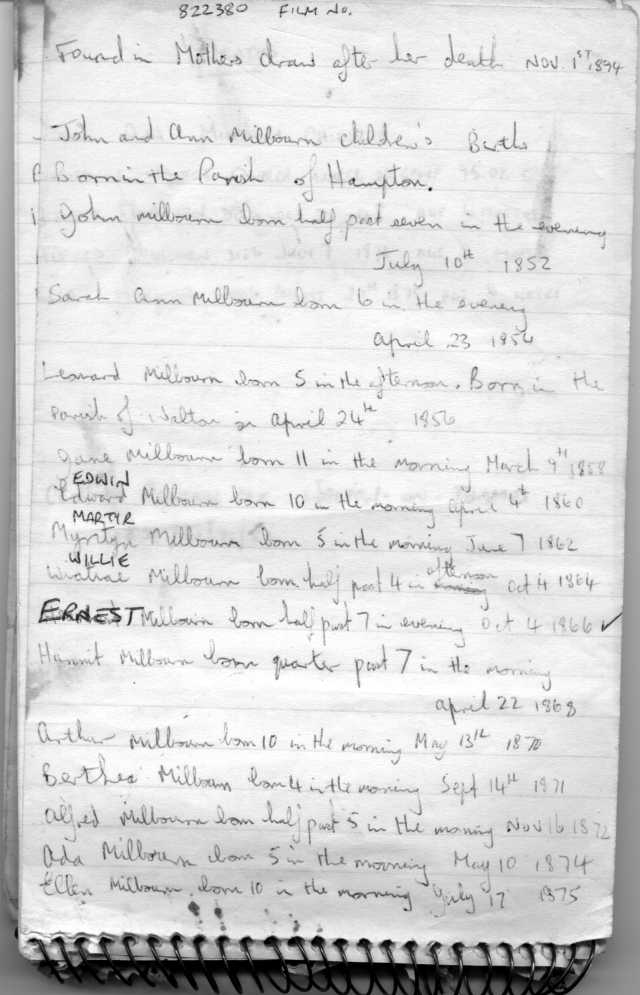 822380 FILM No.
Found in Mothers draw after her death NOV. 1ST 1894
John and Ann Milbourn children's Berths
Born in the Parish of Hampton.
John Milbourn born half past seven in the evening
July 10th 1852
Sarah Ann Milbourn born 6 in the evening
April 23 1854
Leonard Milbourn born 5 in the afternoon. Born in the
parish of Walton in April 24th 1856
Jane Milbourn born 11 in the morning March 9th 1858
EDWIN
Edward Milbourn born 10 in the morning April 4th 1860
MARTYR
Myrtyn Milbourn born 5 in the morning June 7 1862
WILLIE
Milbourn born half past 4 in afternoon Oct 4 1864
ERNEST Milbourn born half past 7 in evening Oct 4 1866 ✓
Hannit Milbourn born quarter past 7 in the morning
April 22 1868
Arthur Milbourn born 10 in the morning May 13th 1870
Berthea Milbourn born 4 in the morning Sept 14th 1871
Alfred Milbourn born half past 5 in the morning Nov 16 1872
Ada Milbourn born 5 in the morning May 10 1874
Ellen Milbourn born 10 in the morning July 17 1875